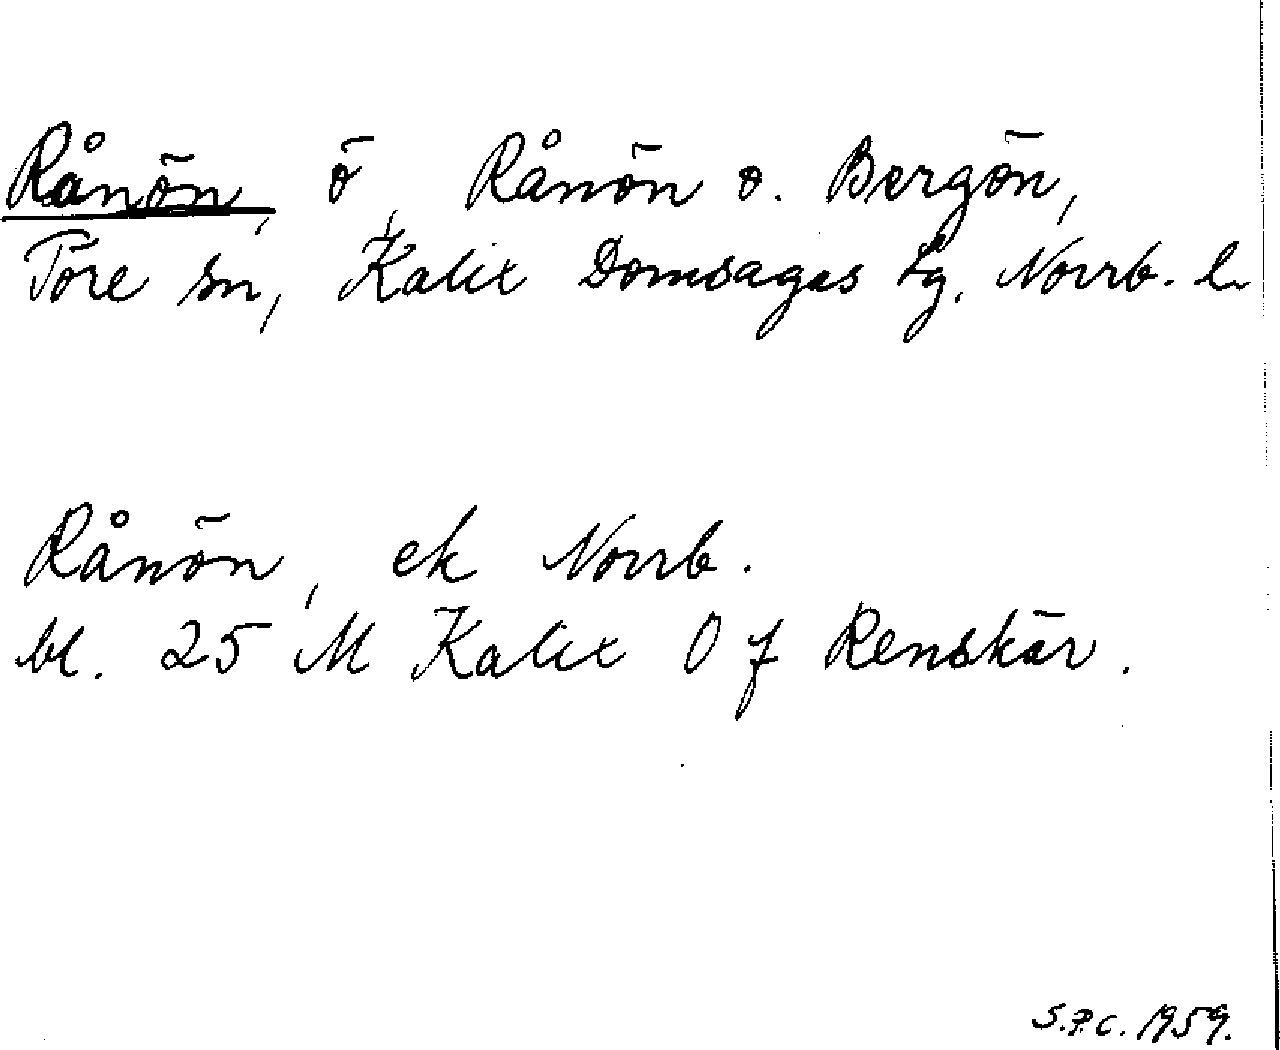 Rånön, ö, Rånön o. Bergön,
Töre sn, Kalix Domsagas tg. Norrb. l.
Rånön, ek Norrb.
bl. 25 M Kalix O f Renskär.
S.P.C. 1959.